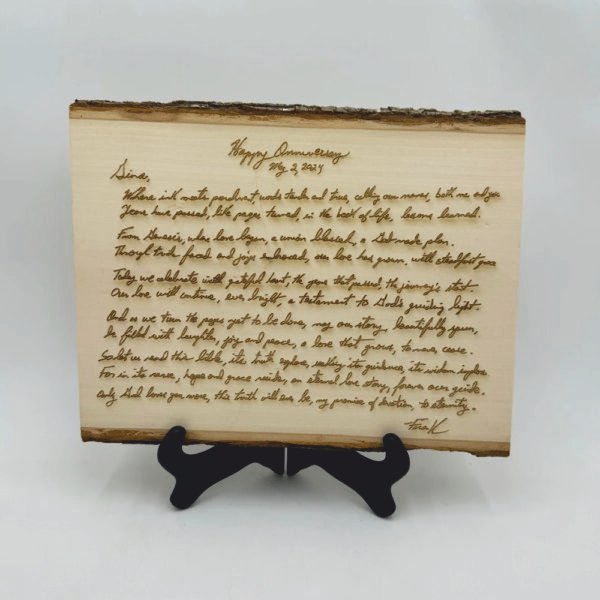 Happy Anniversary
May 2, 2024
Gina,
Where ink meets parchment, words tender and true, calling our names, both me and you
Years have passed, like pages turned, in the book of life, lessons learned.
From Genesis, where love began, a union blessed, a God-made plan.
Through trials faced and joys embraced, our love has grown with steadfast grace
Today we celebrate with grateful heart, the years that passed, the journey's start.
Our love will continue, ever bright, a testament to God's guiding light.
And as we turn the pages yet to be done, may our story, beautifully spun,
be filled with laughter, joy and peace, a love that grows, to never cease.
So let us read this bible, its truth explore, its guidance, its wisdom explore
For in its verse, hope and grace reside, an eternal love story, forever our guide.
Only God loves you more, this truth will ever be, my promise of devotion, to eternity.